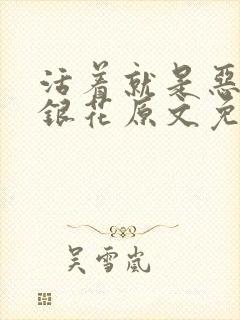 活着就是恶
银花原文免
吴雪岚